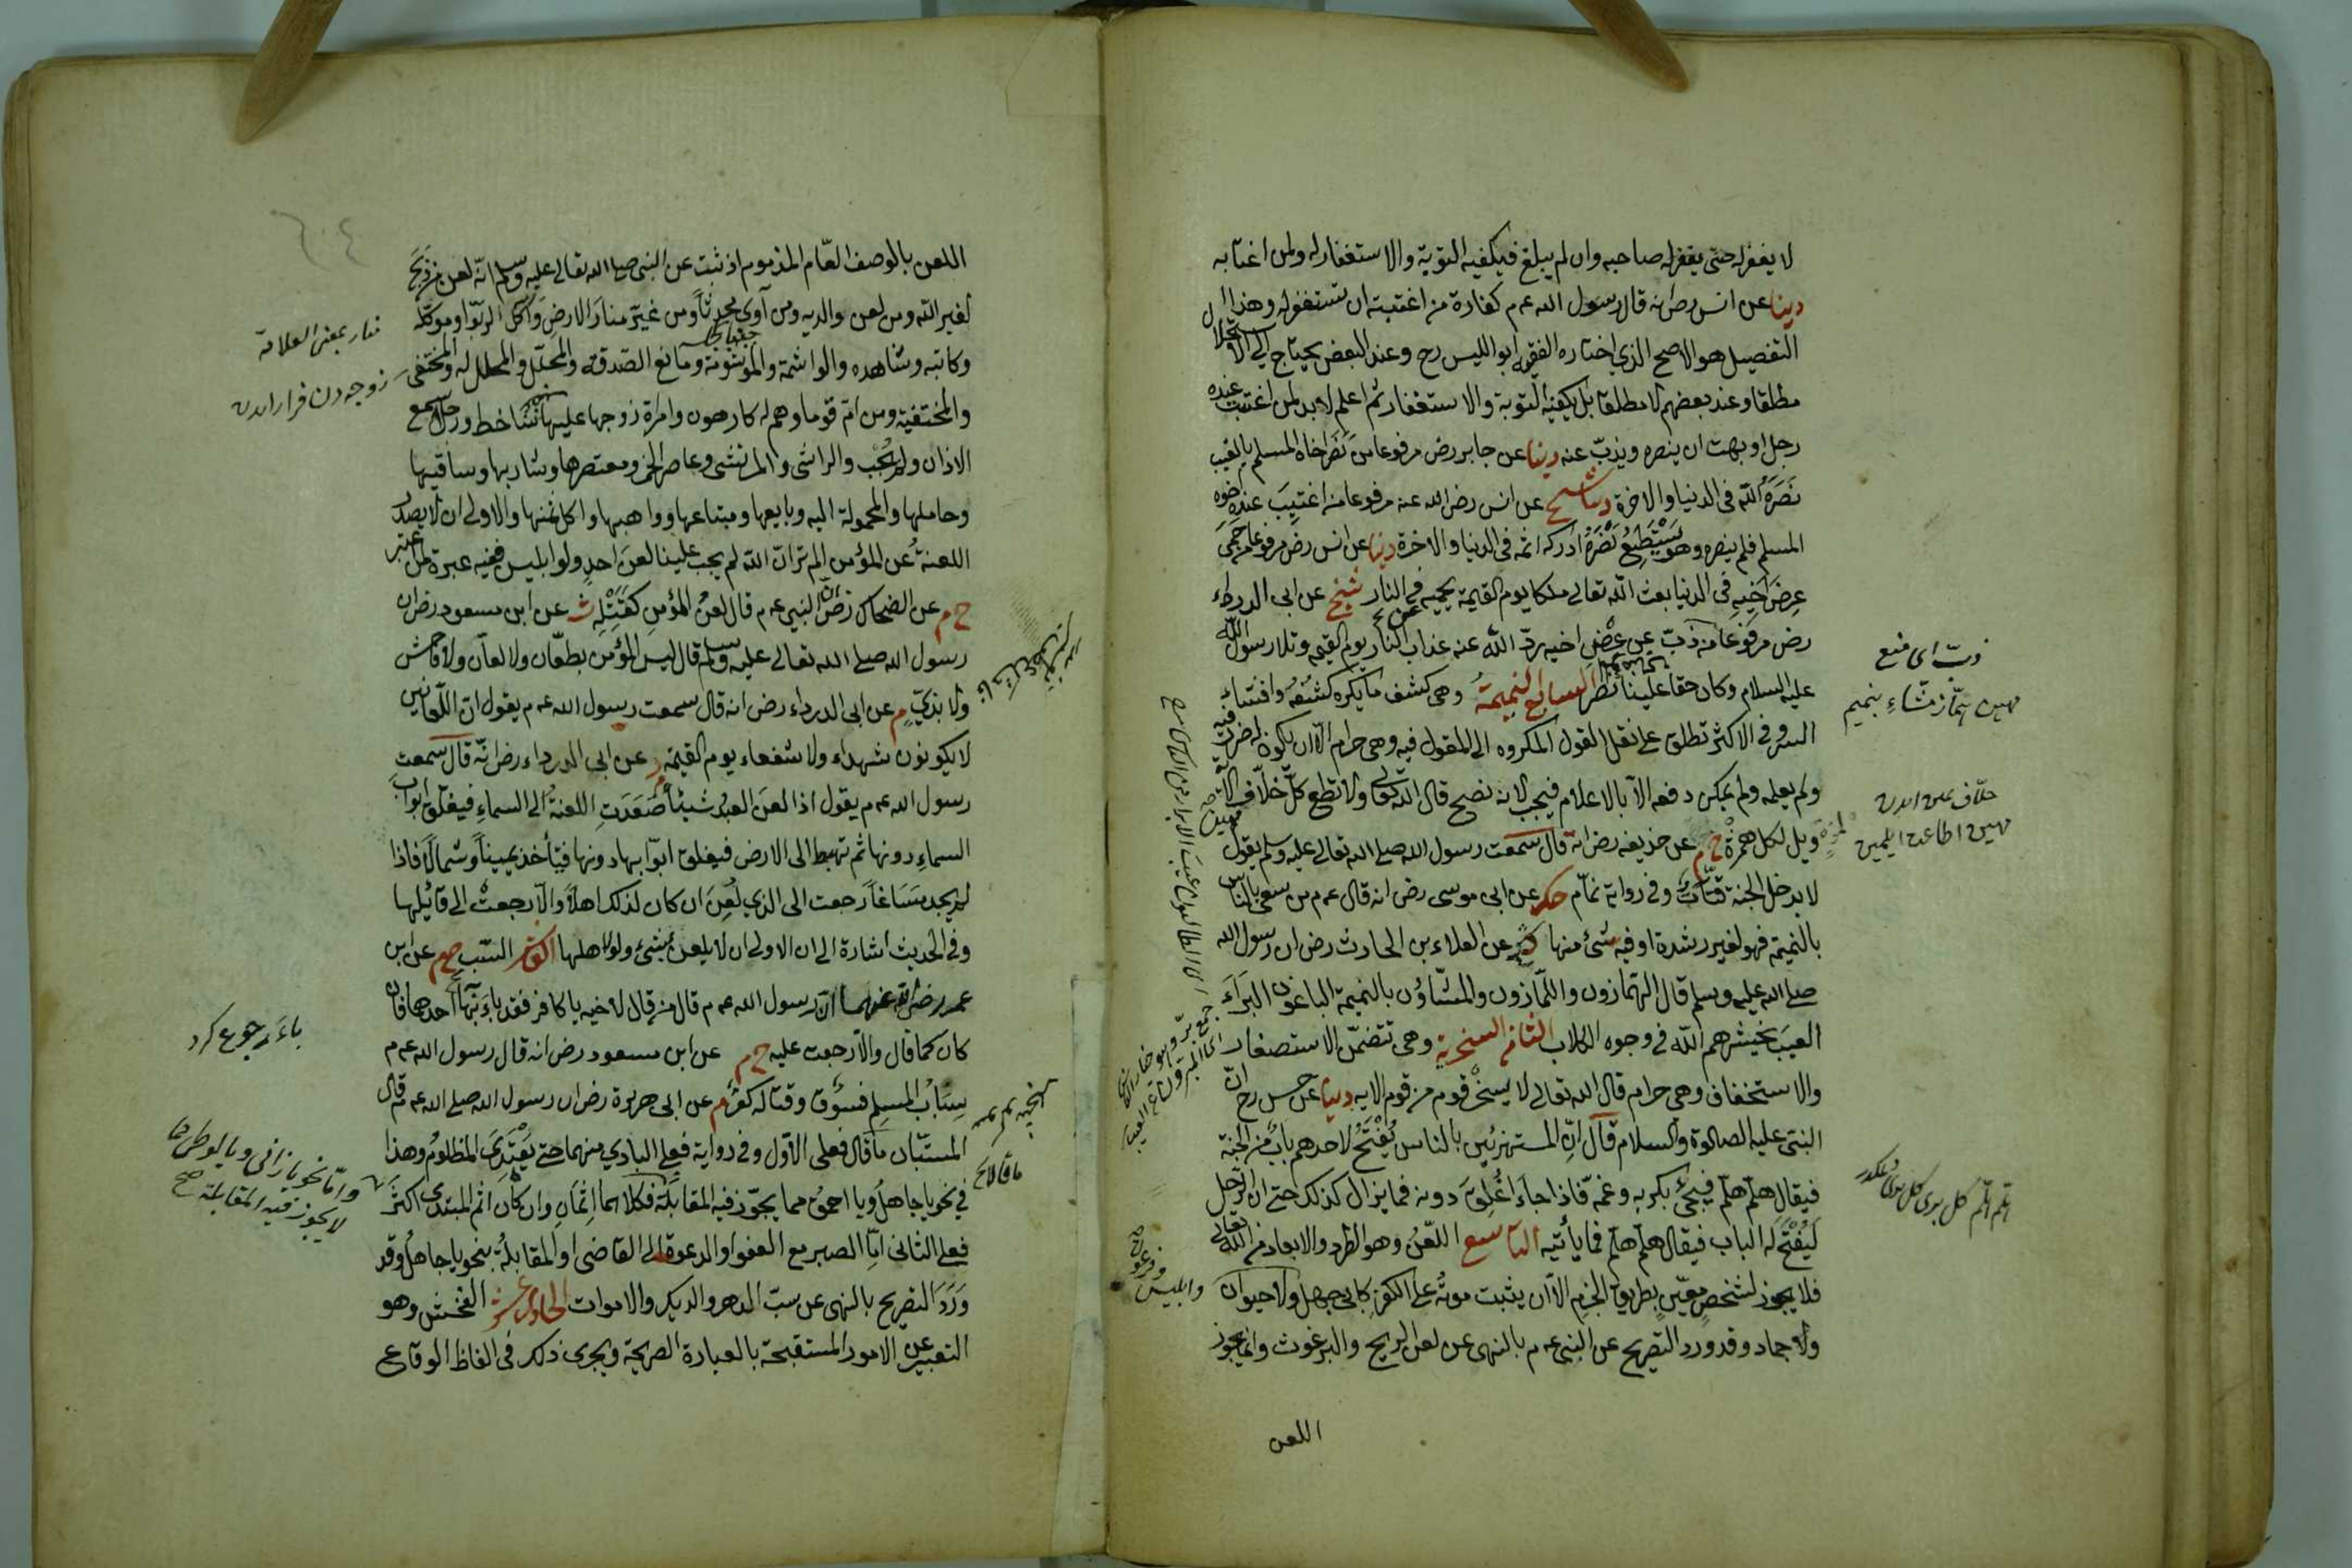 لا يغفر له حتى يغفر له صاحبه وان لم يبلغ فيكفيه التوبة والاستغفار له ولمن اغتابه
دينا عن انس رض انه قال رسول الله عم كفارة من اغتبته ان تستغفر له وهذا
التفصيل هو الاصح الذي اختاره الفقيه ابو الليس رح وعند البعض يحتاج الى الاستحلال
مطلقا وعند بعضهم لا مطلقا بل يكفيه التوبة والاستغفار ثم اعلم لا بد لمن اغتيب عنده
رجل او بهت ان ينصره ويذبّ عنه دينا عن جابر رض مرفوعا من نصر اخاه المسلم بالغيب
نَصَرَهُ اللّه في الدنيا والاخرة شيخ عن انس رض الله عنه مرفوعا من اغتيبَ عنده اخوه
المسلم فلم ينصره وهو يَسْتَطِيعُ نَصْرَهُ ادركه اثمه في الدنيا والاخرة دينا عن انس رض مرفوعا من حمى
عِرضَ اخيهِ في الدنيا بعث اللّه تعالى ملكا يوم القيمة يحميه من النار شيخ عن ابى الدرداء
رض مرفوعا من ذبّ عن عرض اخيه ردّ اللّه عنه عذاب النار يوم القيمة وتلا رسول اللّه
عليه السلام وكان حقا علينا نصر السابع النميمةُ وهى كشف ما يكره كشفُهُ وافشاء
السر وفى الاكثر تطلق على نقل القول المكروه الى المقول فيه وهى حرام الّا ان يكون له ضرر فيه
ولم يعلمه ولم يمكن دفعه الا بالاعلام فيجب لانه نصح قال اللّه تعالى ولا تطع كلّ حلّاف الآية
ويل لكل همزة خ م عن حذيفه رض انه قال سمعت رسول الله صلى الله تعالى عليه وسلم يقول
لا يدخل الجنة قتّات وفى رواية نمّام حك عن ابى موسى رض انه قال عم من سعى بالناس
بالنميمة فهو لغير رشدة او فيه شئ منها عن العلاء بن الحارث رض ان رسول الله
صلى الله عليه وسلم قال الهمّازون واللمّازون والمشّاؤن بالنميمة الباغون البرَآءَ
العيبَ يحشرهم اللّه فى وجوه الكلاب الثامن السخرية وهى تتضمّن الاستصغار
والاستخفاف وهى حرام قال الله تعالى لا يسخر قوم من قوم الايه دينا عن حسن رح انّ
النبى عليه الصلوة والسلام قال انّ المستهزئين بالناس يُفْتَحُ لاحدهم بابٌ من الجنة
فيقال هلمّ هلمّ فيجئُ بكربه وغمّه فاذا جاءَ اُغلِقَ دونه فما يزال كذلك حتى ان الرجل
لَيُفْتَحُ لَهُ الباب فيقال هلمّ هلمّ فما يأتيه التاسع اللعنُ وهو الطرد والابعاد من اللّه تعالى
فلا يجوز لشخصٍ معيّنٍ بطريق الجزمِ الّا ان يثبت موتُه على الكفر كابى جهل ولا حيوان
ولا جماد وقد ورد التصريح عن النبى عم بالنهى عن لعن الريح والبرغوث وانما يجوز
اللعن
ذبّ اى منع
مهين همّاز مشّاءٍ بنميم
حلّاف يمين ايدن
مهين اطاعت ايلمين
هلمّ هلمّ كل برى كل برى ديمكدر
وابليس وفرعون
اللعن بالوصف العّام المذموم اذ ثبت عن النبى صلى الله تعالى عليه وسلم انّه لعن من ذبح
لغير اللّه ومن لعن والديه ومن آوى محدِثاً ومن غيّر منارَ الارضِ وآكلَ الربوا وموكلَه
وكاتبه وشاهده والواشمة والموشومة ومانع الصّدقة والمحلّل والمحلل له والمختفىَ
والمختفية ومن امّ قوما وهم له كارهون وامراة زوجها عليها ساخط ورجلا سمع
الاذان ولم يُجب والراشى والمرتشى وعاصر الخمر ومعتصرها وشاربها وساقيها
وحاملها والمحمولة اليه وبايعها ومبتاعها وواهبها واكل ثمنها والاولى ان لا يصدر
اللعنةُ عن المؤمن الم تر انّ اللّه لم يجب علينا لعنَ احدٍ ولو ابليس ففيه عبرة لمن اعتبر
خ م عن الضحاك رض ان النبى عم قال لعنُ المؤمنِ كقَتْلِهِ ت عن ابن مسعود رض ان
رسول الله صلى الله تعالى عليه وسلم قال ليس المؤمن بطعّان ولا لعّان ولا فاحش
ولا بذىٍّ م عن ابى الدرداء رض انه قال سمعت رسول الله عم يقول انّ اللّعّانين
لا يكونون شهداء ولا شفعاء يوم القيمة د عن ابى الدرداء رض انّه قال سمعت
رسول الله عم يقول اذا لعنَ العبدُ شيئاً صَعَدَتِ اللعنةُ الى السماءِ فيغلق ابوابُ
السماءِ دونها ثم تهبط الى الارض فيغلق ابوابها دونها فيأخذ يميناً وشمالاً فاذا
لم يجد مَسَاغاً رجعت الى الذي لُعِنَ ان كان لذلك اهلاً والّا رجعتْ الى قائلها
وفى الحديث اشارة الى ان الاولى ان لا يلعن بشئ ولو اهلها العاشر السّب خ م عن ابن
عمر رضى اللّه عنهما انّ رسول الله عم قال من قال لاخيه يا كافر فقد باءَ بها احدهما فان
كان كما قال والّا رجعت عليه خ م عن ابن مسعود رض انه قال رسول الله عم
سِبَابُ المسلمِ فسوُق وقتاله كفرٌ م عن ابى هريرة رض ان رسول الله صلى الله عم قال
المستبّان ما قال فعلى الاوّل وفى رواية فعلى البادي منهما حتى يَعْتَدِىَ المظلومُ وهذا
في نحو يا جاهلُ ويا احمق مما يجّوز فيه المقابلة فكلاهما اثِمَانِ وان كان اثم المبتدى اكثرَ
فعلى الثانى امّا الصبر مع العفو او الدعوة الى القاضى او المقابلةُ بنحو يا جاهلُ وقد
وَرَدَ التصريح بالنهى عن سبّ الدهر والديك والاموات الحادى عشر الفحش وهو
التعبير عن الامور المستقبحة بالعبارة الصريحة ويجرى ذلك فى الفاظ الوقاع
منار بمعنى العلامة
زوجه دن فرار ايدن
باءَ رجوع كرد
وامّا نحو يا زانى ويا لوطى مما
لا يجوز فيه المقابلة صح
ما قالا